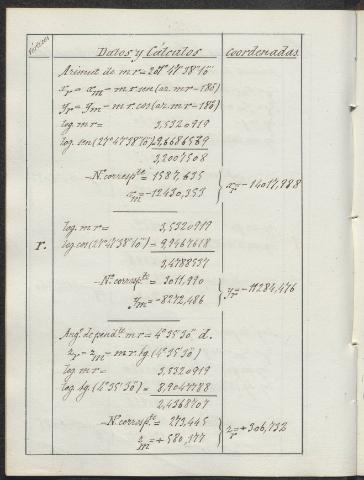 Vértices
Datos y Cálculos
Coordenadas
Azimut de m r = 207° 47' 38" 10'''
x_r = x_m - m r. sen (az. m r - 180)
y_r = y_m - m r. cos (az. m r - 180)
log. m r = 3,5320919
log. sen (27° 47' 38" 10''') = 9,6686589
3,2007508
- N.º corresp.te = 1587,635
x_m = - 12430,353
x_r = - 14017,988
log. m r = 3,5320919
r.
log. cos (27° 47' 38" 10''') = 9,9467618
3,4788537
- N.º corresp.te = 3011,990
y_m = - 8272,486
y_r = - 11284,476
Ang. de pend.te m r = 4° 35' 30" d.
z_r = z_m - m r. tg. (4° 35' 30")
log. m r = 3,5320919
log. tg. (4° 35' 30") = 8,9047788
2,4368707
- N.º corresp.te = 273,445
z_m = + 580,177
z_r = + 306,732